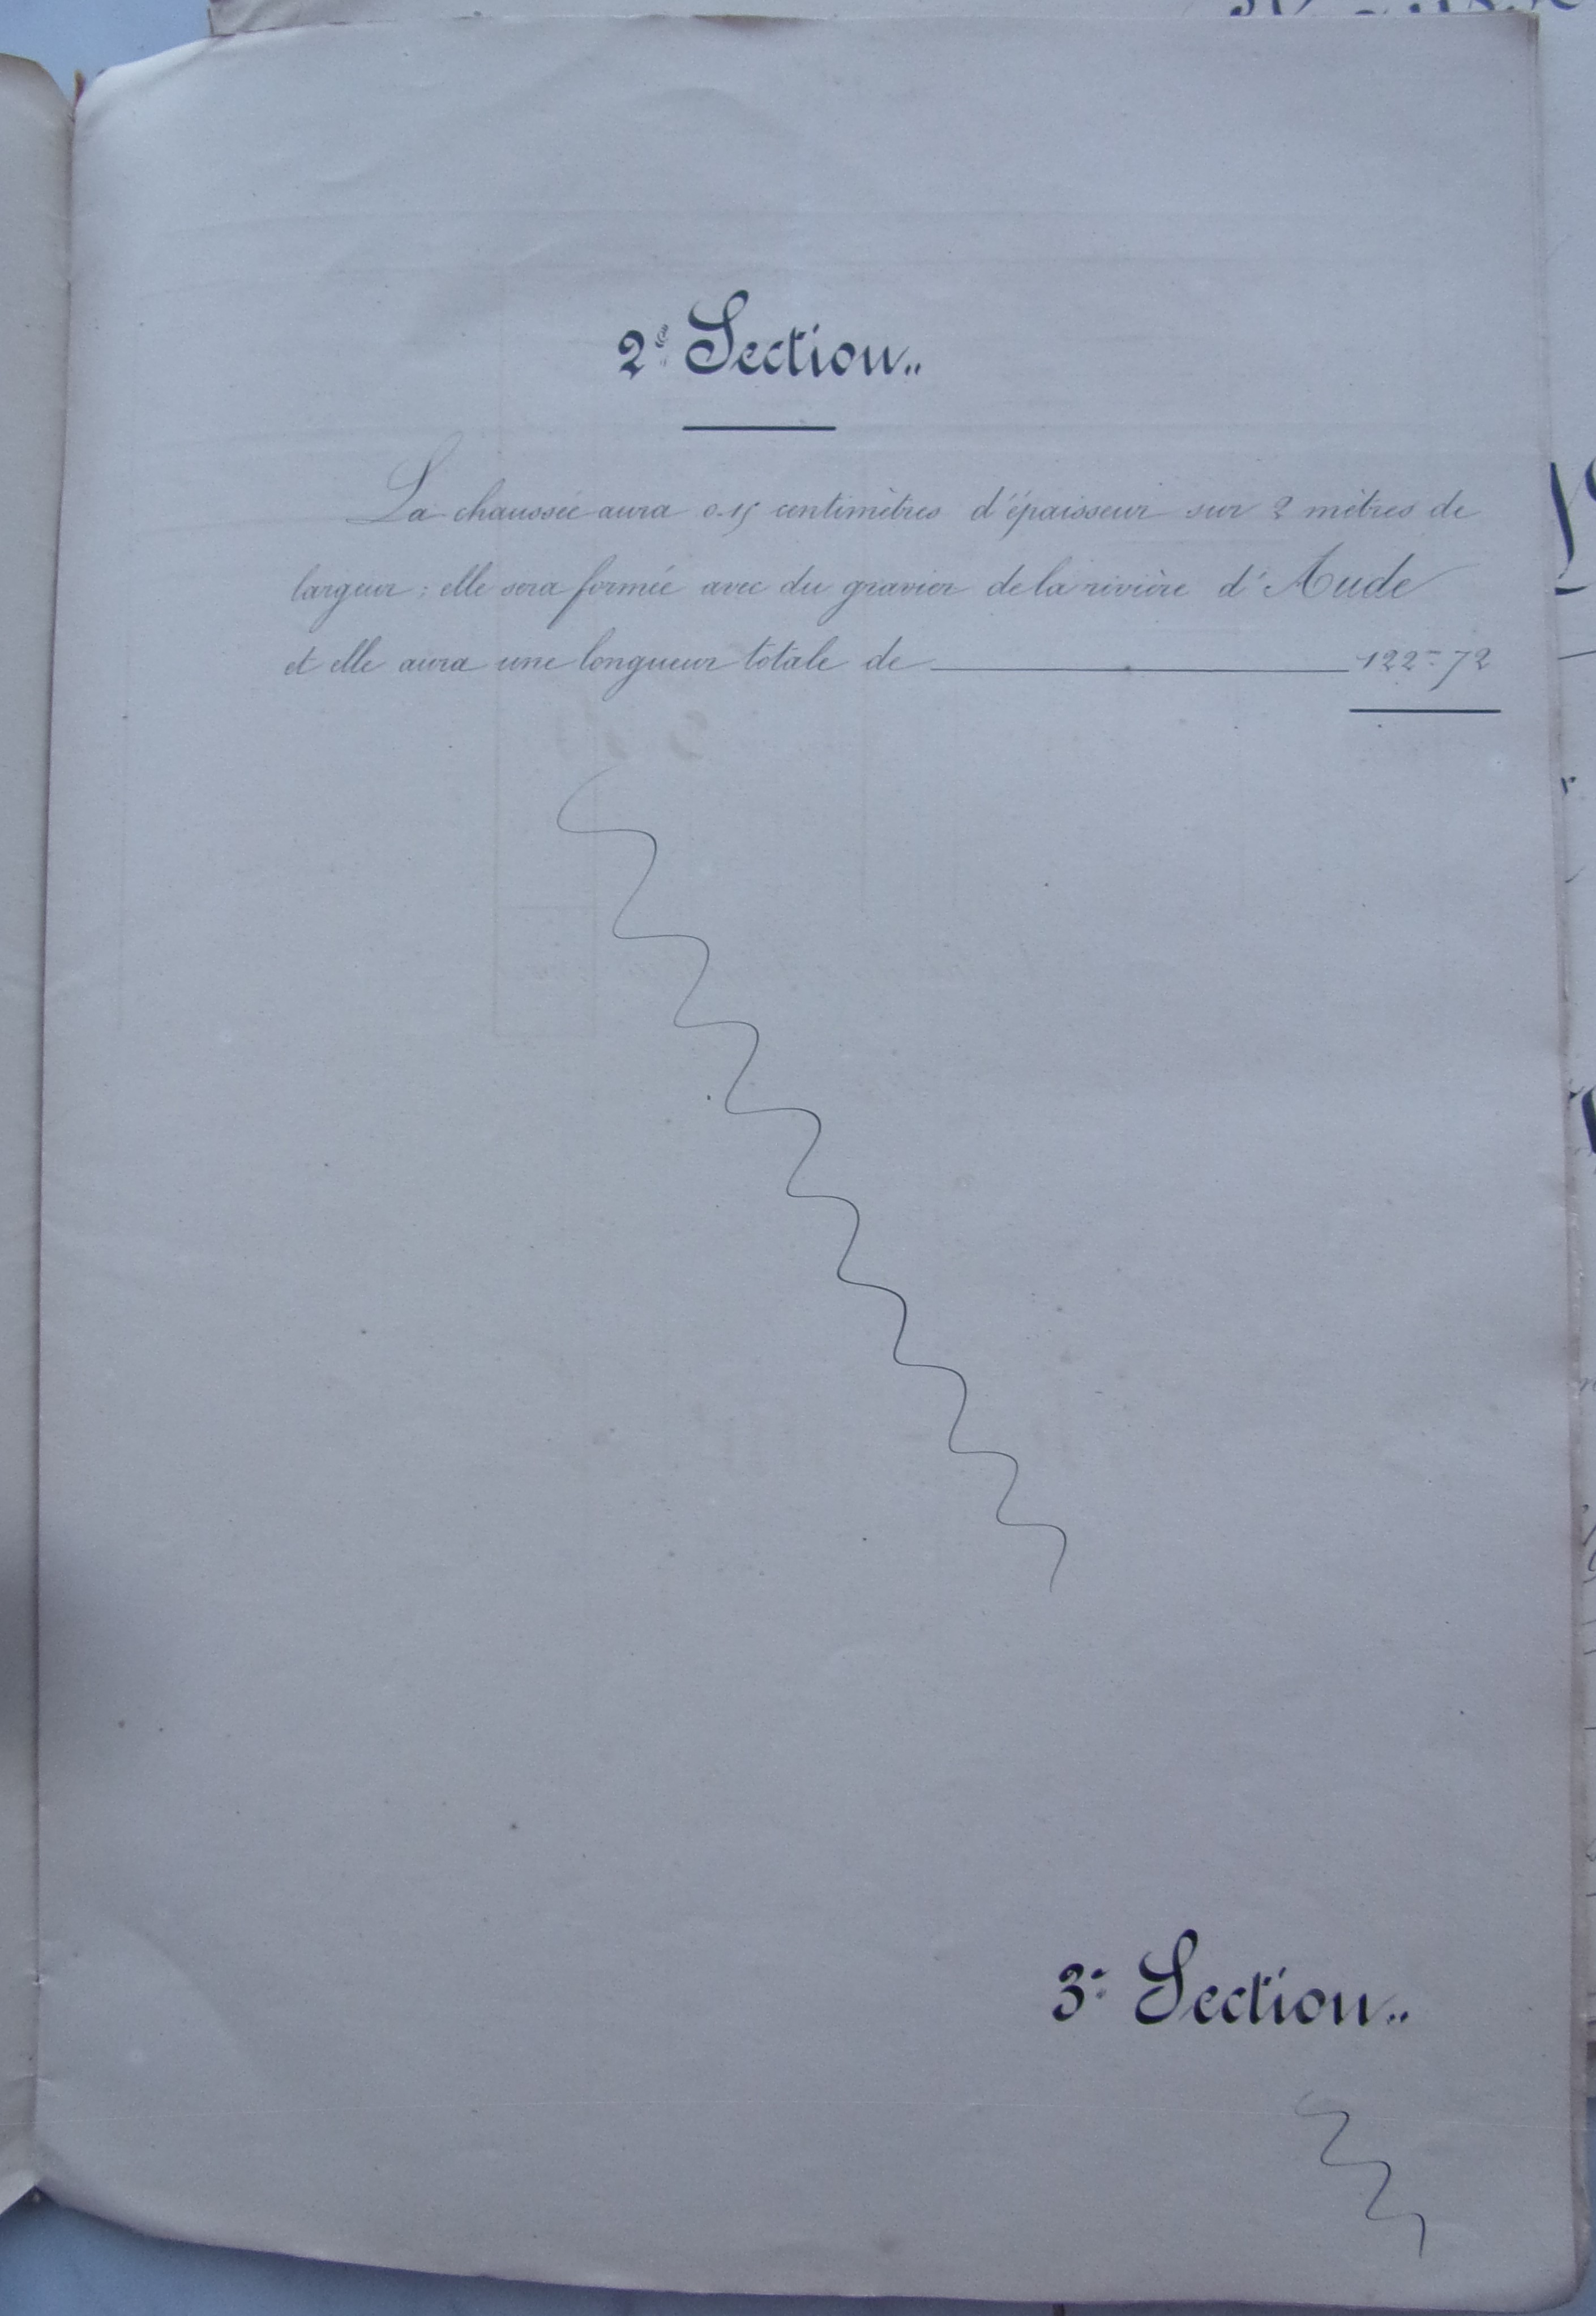 2e Section..
La chaussée aura 0.15 centimètres d'épaisseur sur 2 mètres de
largeur ; elle sera formée avec du gravier de la rivière d'Aude
et elle aura une longueur totale de 122m72
3e Section..